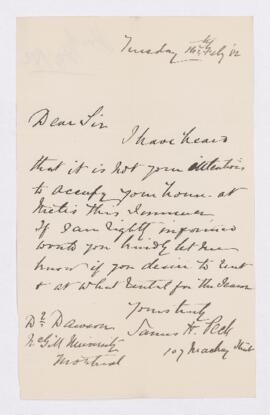 Tuesday 14th Feby '82
Dear Sir
I have heard
that it is not your intention
to occupy your house at
Metis this Summer
If I am rightly informed
would you kindly let me
know if you desire to rent
& at what rental for the Season
Yours truly
James H. Peck
107 Mackay Street
Dr. Dawson
McGill University
Montreal